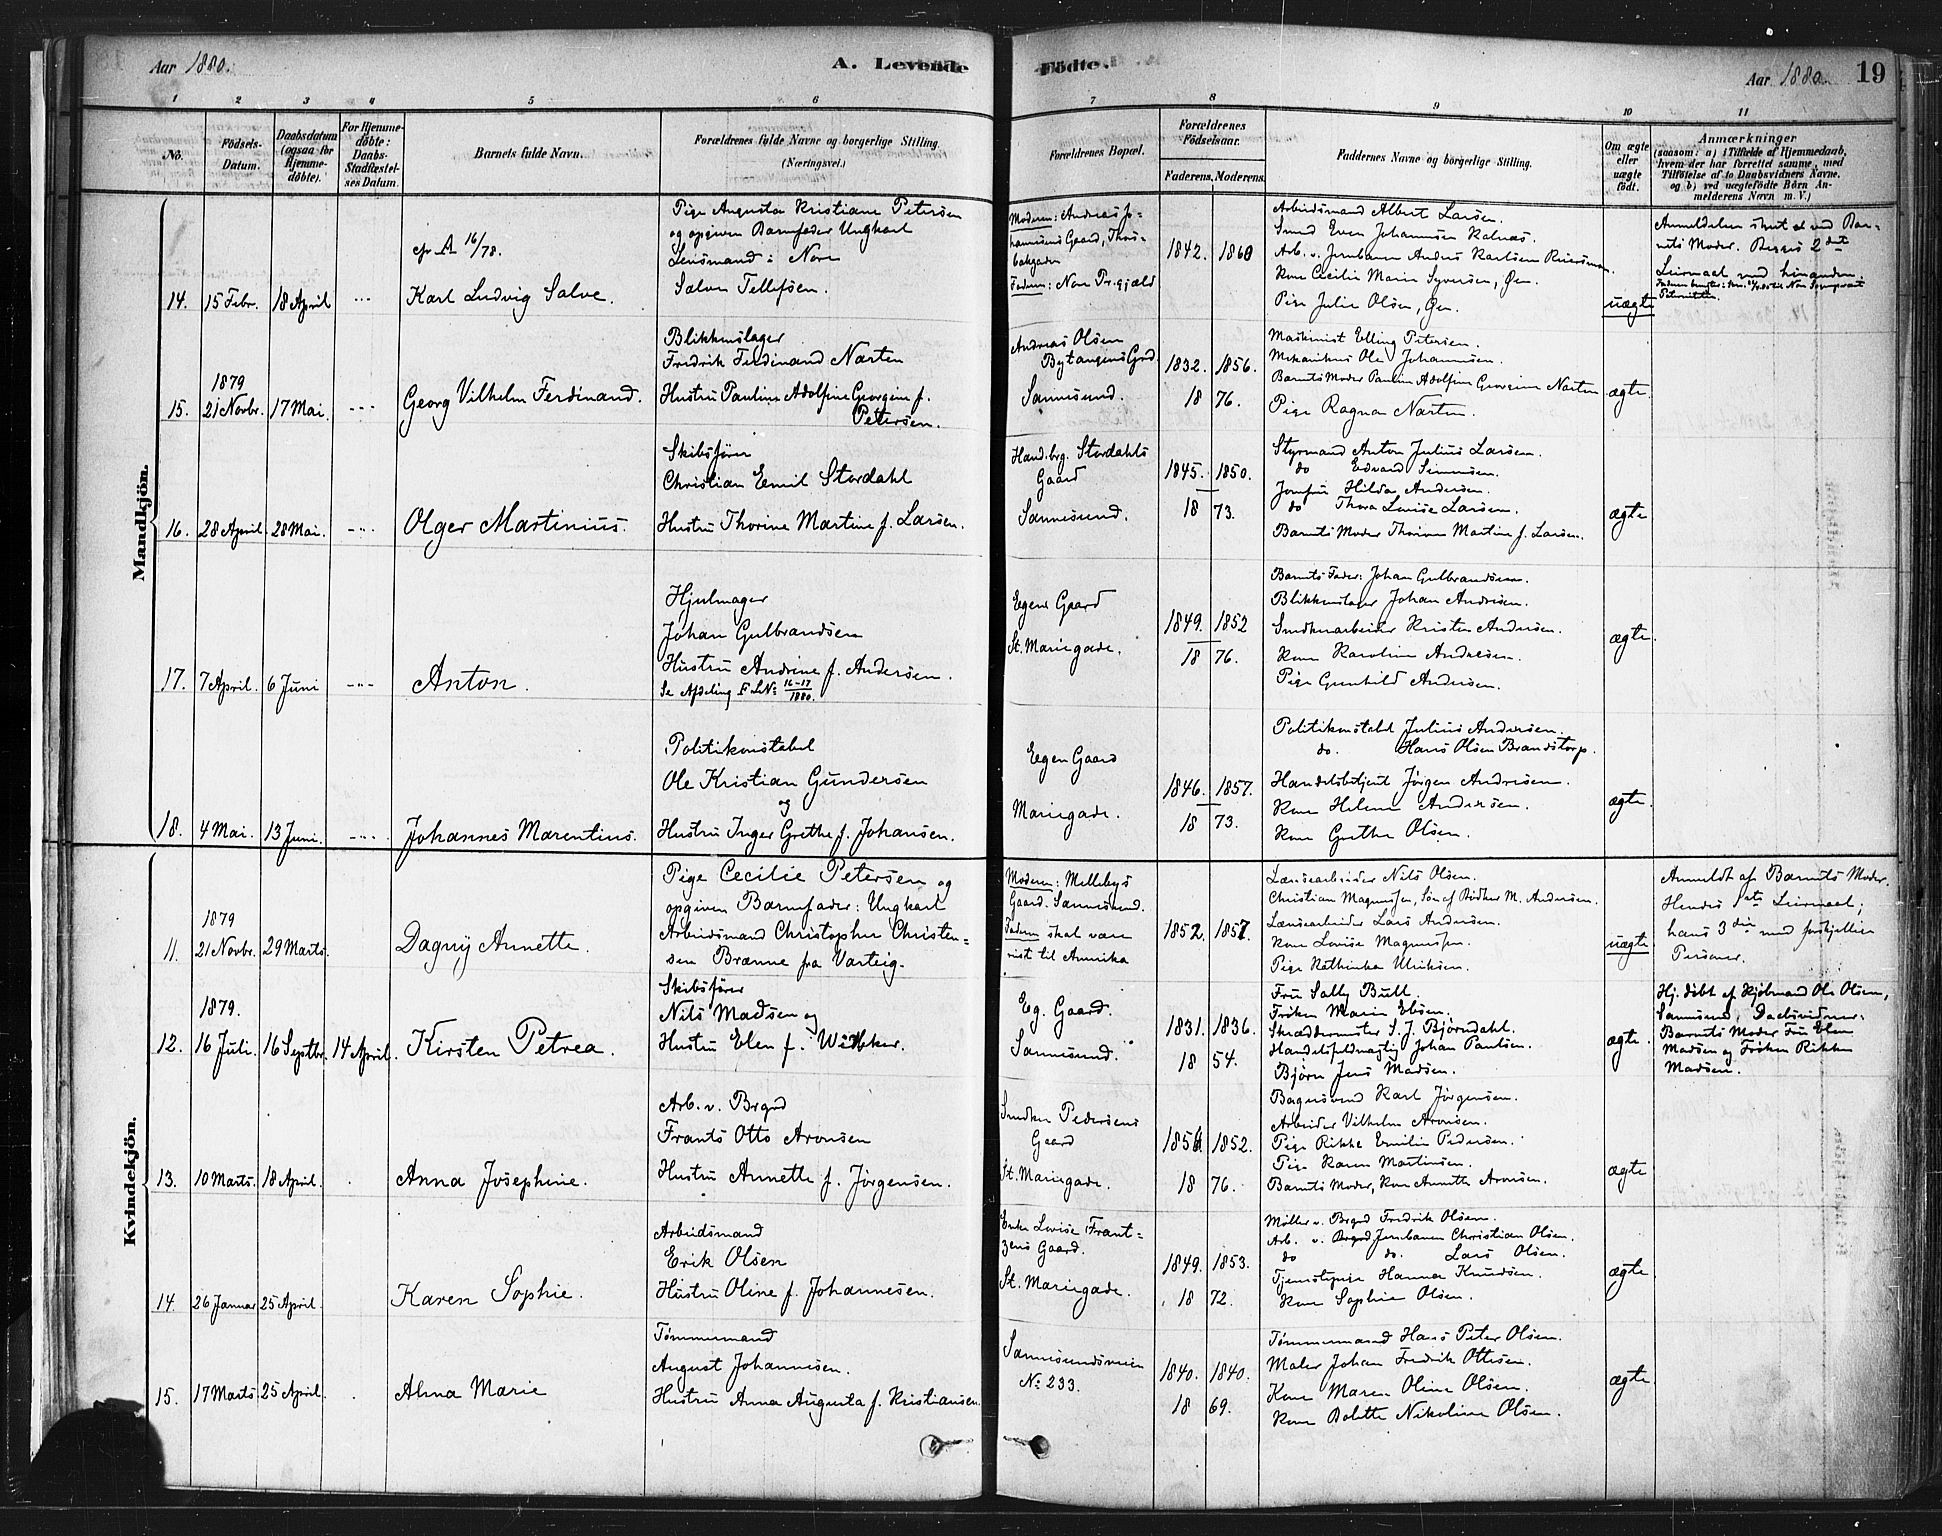 Aar 1880.
A. Levende
Födte.
Aar 1880.
19
1
2
3
4
5
6
7
8
9
10
11
No.
Födsels-
Datum.
Daabsdatum
(ogsaa for
Hjemme-
döbte).
For Hjemme-
döbte:
Daabs-
Stadfæstel-
ses Datum.
Barnets fulde Navn.
Forældrenes fulde Navne og borgerlige Stilling.
(Næringsvei.)
Forældrenes Bopæl.
Forældrenes
Födselsaar.
Faderens.
Moderens.
Faddernes Navne og borgerlige Stilling.
Om ægte
eller
uægte
födt.
Anmærkninger
(saasom: a) i Tilfælde af Hjemmedaab,
hvem der har forrettet samme, med
Tilföielse af to Daabsvidners Navne.
og b) ved uægtefödte Börn An-
melderens Navn m. V.)
Mandkjön.
14.
15 Febr.
18 April
cfr A 16/78.
Karl Ludvig Salve.
Pige Augusta Kristiane Petersen
og opgiven Barnefader Ungkarl
Lensmand i Nore
Salve Tellefsen.
Moderen: Andreas Jo-
hannesens Gaard, Thors-
bækgaden
Faderen: Nore Pr.gjæld
1842.
1860
Arbeidsmand Albert Larsen.
Smed Even Johannesen Kalnæs.
Arb. v. Jernbanen Anders Karlsen Reiersmoen.
Kone Cecilie Marie Syversen, Øen.
Pige Julie Olsen, Øen.
uægte
Anmeldelsen skeet ved Bar-
nets Moder. Begges 2det
Leiermaal med hinanden.
15.
1879
21 Novbr.
17 Mai.
Georg Vilhelm Ferdinand.
Blikkenslager
Fredrik Ferdinand Narten
Hustru Pauline Adolfine Georgine f.
Petersen.
Andreas Olsen
Bytangens Grd.
Sannesund.
1832.
1856.
18 76.
Maskinist Elling Petersen.
Mekanikus Ole Johannesen.
Barnets Moder Pauline Adolfine Georgine Narten
Pige Ragna Narten.
ægte.
16.
28 April
28 Mai.
Olger Martinius.
Skibsfører
Christian Emil Stordahl
Hustru Thorine Martine f. Larsen.
Hand.brg. Stordahls
Gaard
Sannesund.
1845.
1850.
18 73.
Styrmand Anton Julius Larsen.
do Edvard Simensen.
Jomfru Hilda Andersen.
do Thora Lovise Larsen.
Barnets Moder Thorine Martine f. Larsen.
ægte
17.
7 April.
6 Juni
Anton.
Hjulmager
Johan Gulbrandsen
Hustru Andrine f. Andersen.
Se Afdeling F LNo 16-17/1880.
Egens Gaard
St. Mariegade.
1849.
1852
18 76.
Barnets Fader: Johan Gulbrandsen.
Blikkenslager Johan Andersen.
Snedkerarbeider Kristen Andersen.
Kone Karoline Andersen.
Pige Gunhild Andersen.
ægte
18.
4 Mai.
13 Juni.
Johannes Marentius.
Politikonstabel
Ole Kristian Gundersen
og
Hustru Inger Grethe f. Johansen.
Egen Gaard
Mariegade.
1846.
1857.
18 73.
Politikonstabel Julius Andersen.
do. Hans Olsen Brandstorp.
Handelsbetjent Jørgen Andersen.
Kone Helene Andersen.
Kone Grethe Olsen.
ægte.
Kvindekjön.
11.
1879
21 Novbr.
29 Marts.
Dagny Annette.
Pige Cecilie Petersen og
opgiven Barnefader: Ungkarl
Arbeidsmand Christopher Christen=
sen Brænne fra Varteig.
Moderen: Mellebys
Gaard. Sannesund.
Faderen skal være
reist til Amerika
1852.
1857.
Lænsearbeider Nils Olsen.
Christian Magnussen, Søn af Bødker M. Andersen.
Lænsearbeider Lars Andersen.
Kone Lovise Magnussen.
Pige Kathinka Ulriksen.
uægte
Anmeldt af Barnets Moder.
Hendes 1ste Leiermaal;
hans 3die med forskjellige
Personer.
12.
1879.
16 Juli.
16 Septbr.
14 April.
Kirsten Petrea.
Skibsfører
Nils Madsen og
Hustru Elen f.
Eg. Gaard.
Sannesund.
1831.
1836.
18 54.
Fru Sally Bull.
Frøken Marie Ebsen.
Skræddermester S. J. Bjørndahl.
Handelsfuldmægtig Johan Paulsen.
Bjørn Jens Madsen.
ægte.
Hj. døbt af Kjøbmand Ole Olsen,
Sannesund, Daabsvidner:
Barnets Moder Fru Elen
Madsen og Frøken Rikke
Madsen.
13.
10 Marts.
18 April.
Anna Josephine.
Arb. v. Brgrd
Frants Otto Aronsen
Hustru Annette f. Jørgensen.
Snedker Pedersens
Gaard
St. Mariegade.
1852.
18 76.
Bagersvend Karl Jørgensen.
Arbeider Vilhelm Aronsen.
Pige Rikke Emilie Pedersen.
Pige Karen Martinsen.
Barnets Moder, Kone Annette Aronsen.
ægte
14.
26 Januar
25 April.
Karen Sophie.
Arbeidsmand
Erik Olsen
Hustru Oline f. Johannesen.
Enke Lovise Frant=
zens Gaard.
St. Mariegade.
1849.
1853.
18 72.
Møller v. Brgrd Fredrik Olsen.
Arb. v. Jernbanen Christian Olsen.
do do. Lars Olsen.
Tjenestepige Hanna Knudsen.
Kone Sophie Olsen.
ægte
15.
17 Marts.
25 April.
Anna Marie
Tømmermand
August Johannesen.
Hustru Anna Augusta f. Kristiansen.
Sannesundsveien
No 233.
1840.
1840.
18 69.
Tømmermand Hans Peter Olsen.
Maler Johan Fredrik Ottesen.
Kone Maren Oline Olsen.
Kone Bolette Nikoline Olsen.
ægte.